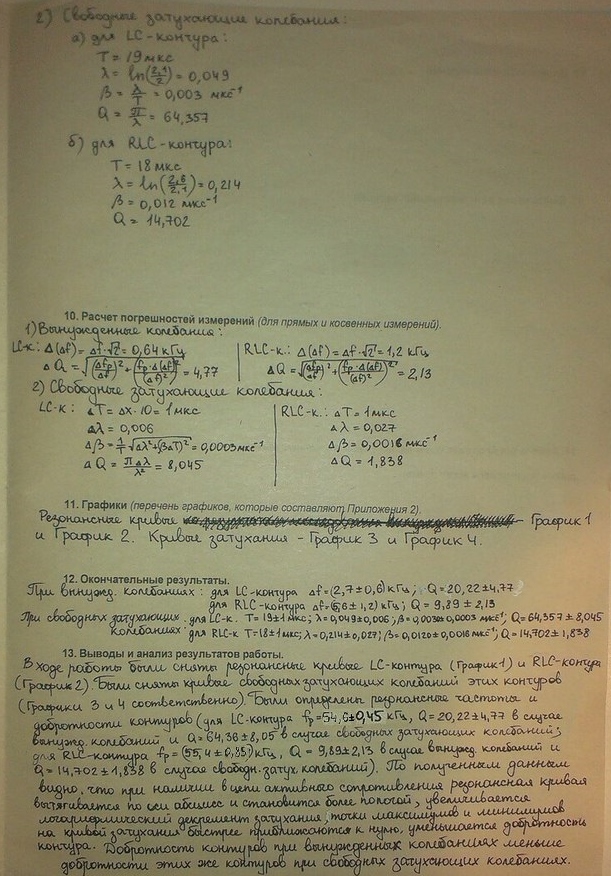 2) Свободные затухающие колебания:
а) для LC-контура:
T = 19 мкс
λ = ln(2,1/2) = 0,049
β = λ/T = 0,003 мкс⁻¹
Q = π/λ = 64,357
б) для RLC-контура:
T = 18 мкс
λ = ln(2,6/2,1) = 0,214
β = 0,012 мкс⁻¹
Q = 14,702
10. Расчет погрешностей измерений (для прямых и косвенных измерений).
1) Вынужденные колебания:
LC-к.: Δ(Δf) = Δf·√2 = 0,64 кГц
ΔQ = √((Δfp/Δf)² + (fp·Δ(Δf)/(Δf)²)²) = 4,77
RLC-к.: Δ(Δf) = Δf·√2 = 1,2 кГц
ΔQ = √((Δfp/Δf)² + (fp·Δ(Δf)/(Δf)²)²) = 2,13
2) Свободные затухающие колебания:
LC-к: ΔT = Δx·10 = 1 мкс
Δλ = 0,006
Δβ = 1/T √(Δλ² + (βΔT)²) = 0,0003 мкс⁻¹
ΔQ = πΔλ/λ² = 8,045
RLC-к.: ΔT = 1 мкс
Δλ = 0,027
Δβ = 0,0016 мкс⁻¹
ΔQ = 1,838
11. Графики (перечень графиков, которые составляют Приложения 2).
Резонансные кривые - График 1
и График 2. Кривые затухания - График 3 и График 4.
12. Окончательные результаты.
При вынужд. колебаниях: для LC-контура Δf = (2,7±0,6) кГц; Q = 20,22±4,77
для RLC-контура Δf = (5,6±1,2) кГц; Q = 9,89±2,13
При свободных затухающих для LC-к. T = 19±1 мкс; λ = 0,049±0,006; β = 0,0030±0,0003 мкс⁻¹; Q = 64,357±8,045
колебаниях: для RLC-к T = 18±1 мкс; λ = 0,214±0,027; β = 0,0120±0,0016 мкс⁻¹; Q = 14,702±1,838
13. Выводы и анализ результатов работы.
В ходе работы были сняты резонансные кривые LC-контура (График 1) и RLC-контура
(График 2). Были сняты кривые свободных затухающих колебаний этих контуров
(Графики 3 и 4 соответственно). Были определены резонансные частоты и
добротности контуров (для LC-контура fp = 54,6±0,45 кГц, Q = 20,22±4,77 в случае
вынужд. колебаний и Q = 64,36±8,05 в случае свободных затухающих колебаний;
для RLC-контура fp = (55,4±0,35) кГц, Q = 9,89±2,13 в случае вынужд. колебаний и
Q = 14,702±1,838 в случае свободн. затух. колебаний). По полученным данным
видно, что при наличии в цепи активного сопротивления резонансная кривая
вытягивается по оси абсцисс и становится более пологой, увеличивается
логарифмический декремент затухания, точки максимумов и минимумов
на кривой затухания быстрее приближаются к нулю, уменьшается добротность
контура. Добротность контуров при вынужденных колебаниях меньше
добротности этих же контуров при свободных затухающих колебаниях.